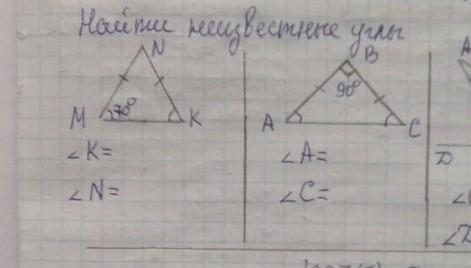 Найти неизвестные углы
N
M 70° K
∠K=
∠N=
B
90°
A C
∠A=
∠C=
A
D
∠
∠D